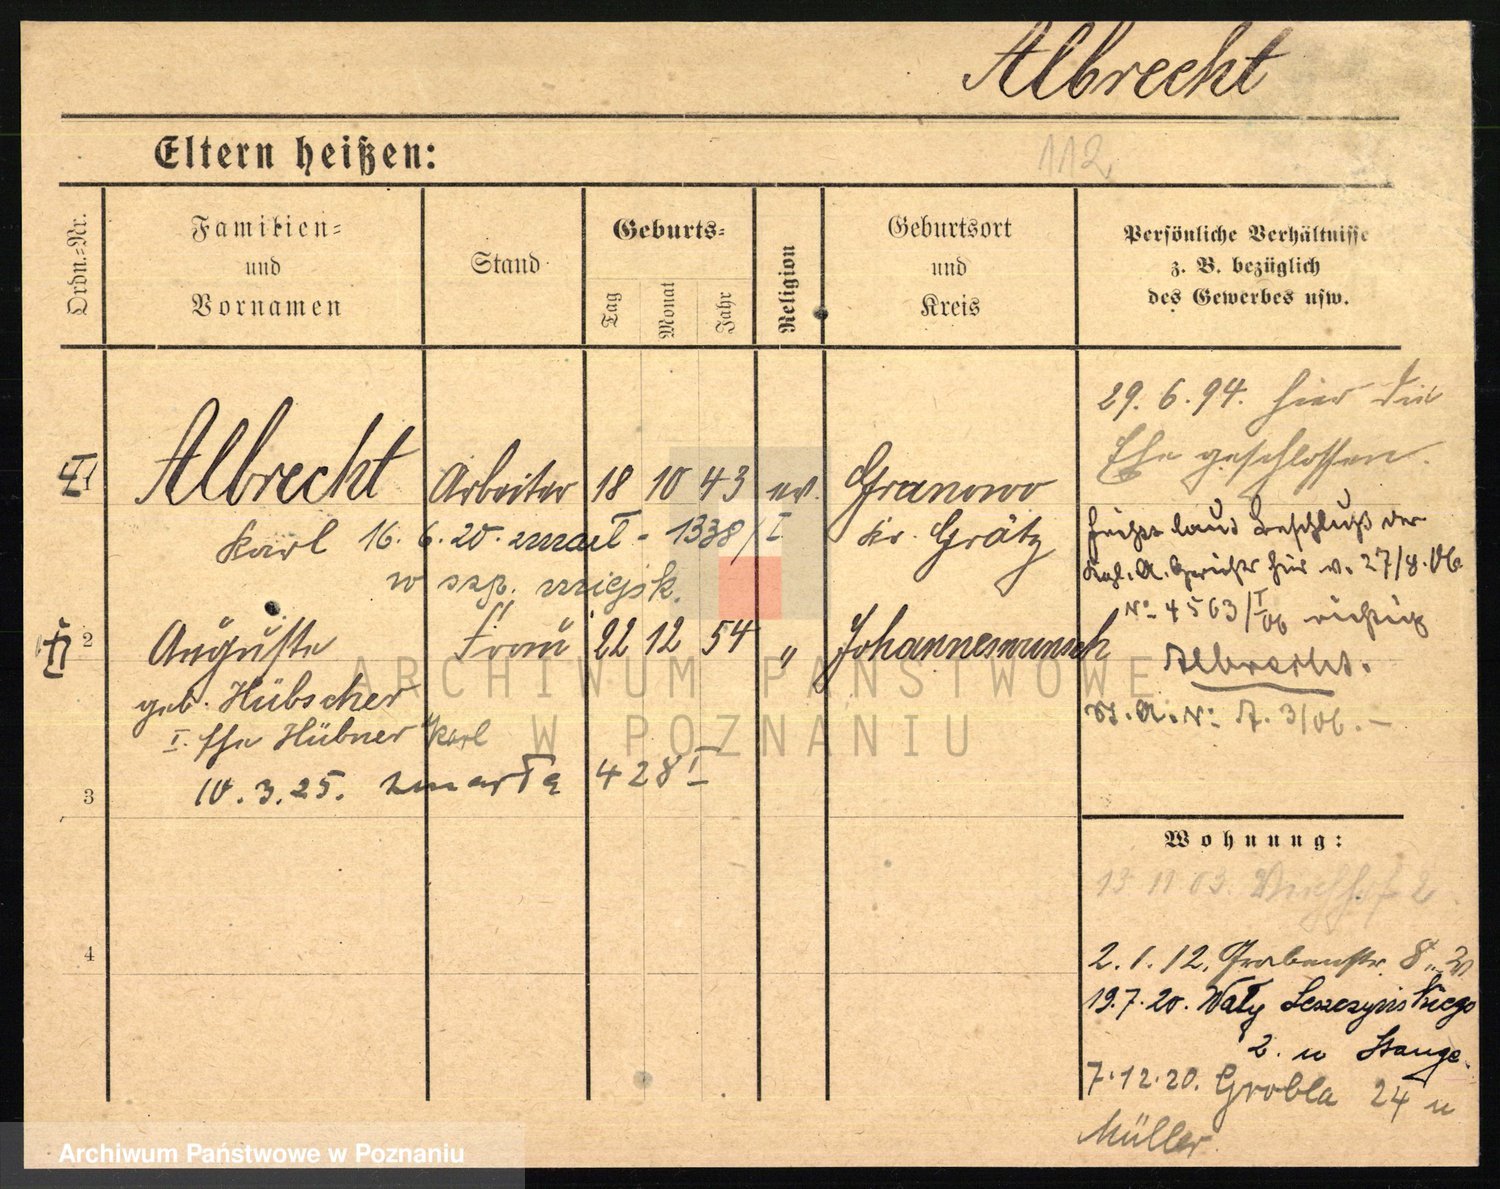 Albrecht
Eltern heißen:
112
Ordn.-Nr.
Familien- und Vornamen
Stand
Geburts-
Tag
Monat
Jahr
Religion
Geburtsort und Kreis
Persönliche Verhältnisse
z. B. bezüglich
des Gewerbes usw.
1 Albrecht Arbeiter 18 10 43 ev. Granowo
Karl 16. 6. 20. zmarł - 1338/I Kr. Grätz
w szp. miejsk.
2 Auguste Frau 22 12 54 „ Johannesmunsch
geb. Hübscher
I. Ehe Hübner Karl
10.3.25. zmarła 428 I
3
4
29. 6. 94. hier die
Ehe geschlossen.
laut Beschluß der
Kgl. A. Gerichts hier v. 27/8. 06
No 4503/I 06 richtig
Albrecht.
St. A. No A. 3/06. –
Wohnung:
13 11 03. 2
2. 1. 12. Grabenstr. 8
19.7.20. Wały Leszczyńskiego
2. u Stange.
7.12.20. Grobla 24 u
Müller.
ARCHIWUM PAŃSTWOWE
W POZNANIU
Archiwum Państwowe w Poznaniu